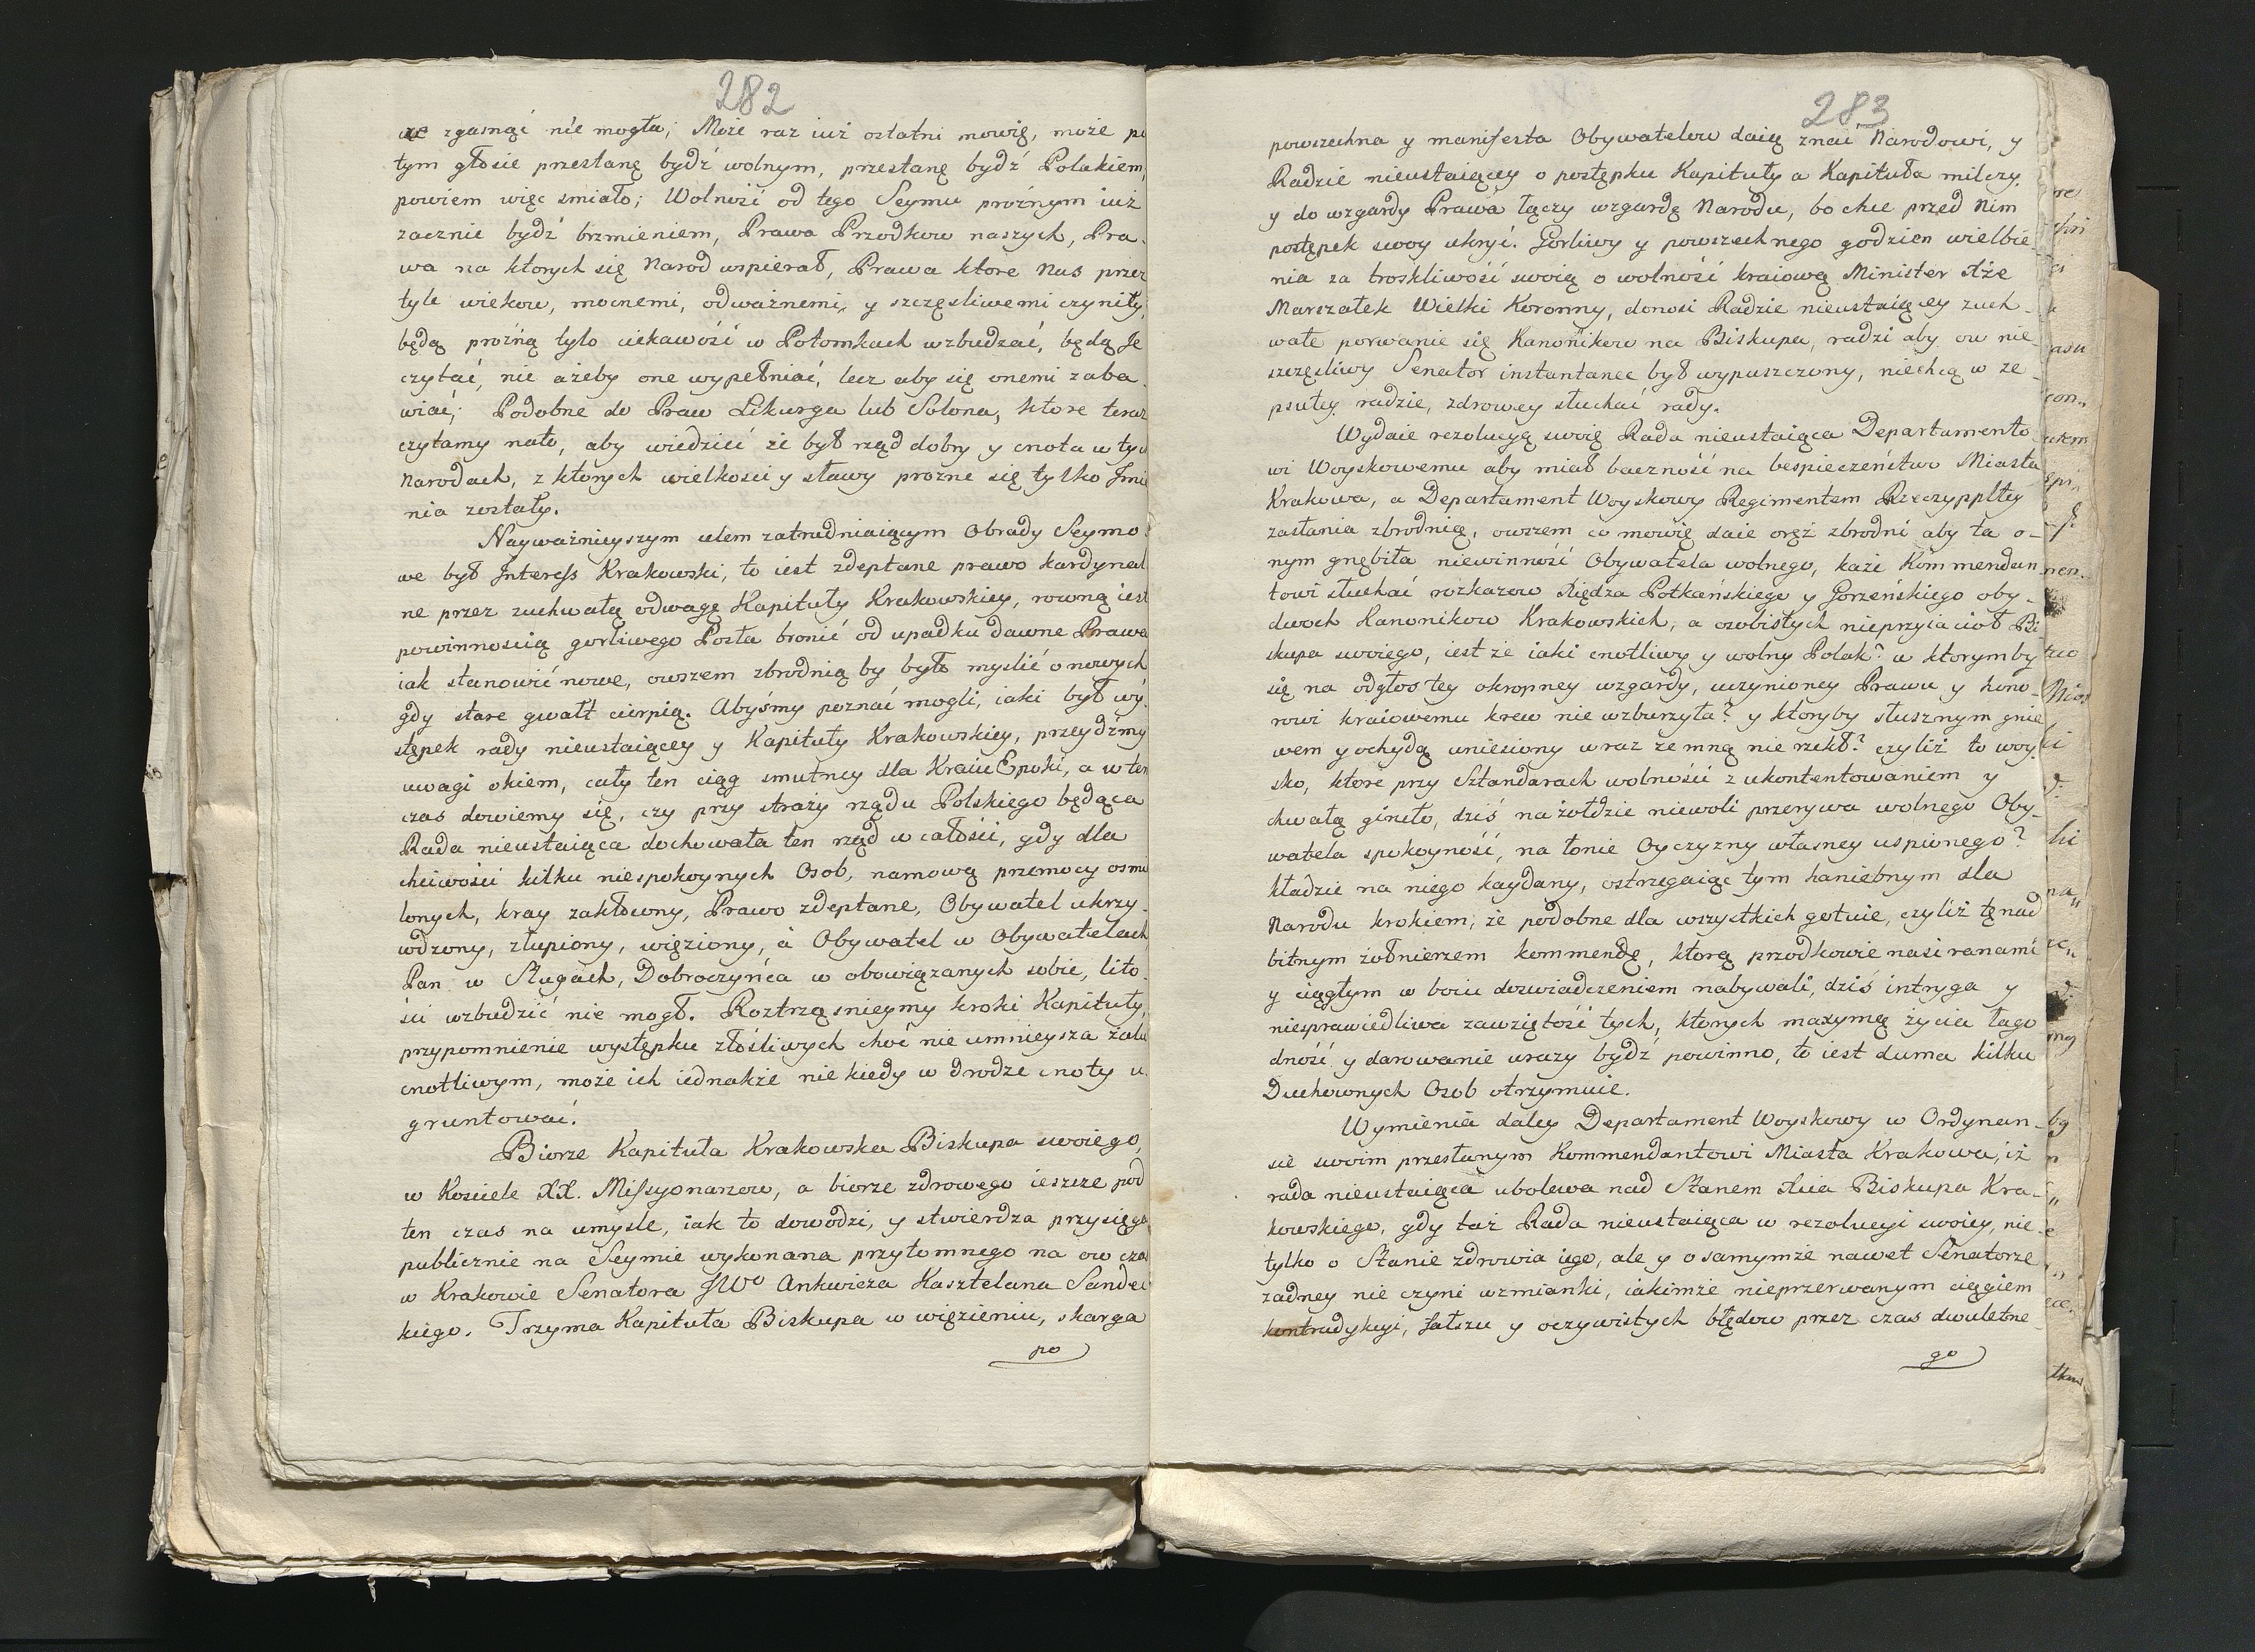 282
że zgasnąć nie mogła; Może raz iuż ostatni mowię, może po
tym głosie przestanę bydź wolnym, przestanę bydź Polakiem,
powiem więc smiało; Wolność od tego Seymu próżnym iuż
zacznie bydź brzmieniem, Prawa Przodkow naszych, Pra-
wa na ktorych się Narod wspierał, Prawa ktore Nas przez
tyle wiekow, mocnemi, odważnemi, y szczęsliwemi czyniły,
będą próżną tylo ciekawość w Potomkach wzbudzać, będą Je
czytać, nie ażeby one wypełniać, lecz aby się onemi zaba-
wiać; Podobne do Praw Likurga lub Solona, ktore teraz
czytamy nato, aby wiedzieć że był rząd dobry y cnota w tych
Narodach, z ktorych wielkości y sławy prożne się tylko Jmie
nia zostały.
Nayważnieyszym celem zatrudniaiącym Obrady Seymo-
we był Interess Krakowski, to iest zdeptane prawo kardynal
ne przez zuchwałą odwagę Kapituły Krakowskiey, rowną iest
powinnoscią gorliwego Posła bronić od upadku dawne Prawa
iak stanowić nowe, owszem zbrodnią by było myslić o nowych
gdy stare gwałt cierpią. Abyśmy poznać mogli, iaki był wy-
stępek rady nieustaiącey y Kapituły Krakowskiey, przeydźmy
uwagi okiem, cały ten ciąg smutney dla Kraiu Epoki, a w ten
czas dowiemy się, czy przy straży rządu Polskiego będąca
Rada nieustaiąca dochowała ten rząd w całości, gdy dla
chciwości kilku niespokoynych Osob, namową przemocy osmie
lonych, kray zakłocony, Prawo zdeptane, Obywatel ukrzy-
wdzony, złupiony, więziony, à Obywatel w Obywatelach,
Pan w Sługach, Dobroczyńca w obowiązanych sobie, lito-
ści wzbudzić nie mogł. Roztrząsnieymy kroki Kapituły,
przypomnienie występku złośliwych choć nie umnieysza żalu
cnotliwym, może ich iednakże nie kiedy w drodze cnoty u-
gruntować.
Biorze Kapituła Krakowska Biskupa swoiego,
w Kosciele XX. Missyonarzow, a biorze zdrowego ieszcze pod
ten czas na umysle, iak to dowodzi, y stwierdza przysięga
publicznie na Seymie wykonana przytomnego na ow czas
w Krakowie Senatora JWo Ankwicza Kasztelana Sandec
kiego. Trzyma Kapituła Biskupa w więzieniu, skarga
po
283
powszechna y manifesta Obywatelow daią znać Narodowi, y
Radzie nieustaiącey o postępku Kapituły a Kapituła milczy,
y do wzgardy Prawa łączy wzgardę Narodu, bo chce przed Nim
postępek swoy ukryć. Gorliwy y powszechnego godzien wielbie-
nia za troskliwość swoią o wolność kraiową Minister Xże
Marszałek Wielki Koronny, donosi Radzie nieustaiącey zuch-
wałe porwanie się Kanonikow na Biskupa, radzi aby ow nie-
szczęsliwy Senator instantanee był wypuszczony, niechcą w ze-
psutey radzie, zdrowey słuchać rady.
Wydaie rezolucyą swoię Rada nieustaiąca Departamento
wi Woyskowemu aby miał baczność na bespieczeństwo Miasta
Krakowa, a Departament Woyskowy Regimentem Rzeczyppltey
zasłania zbrodnią, owszem co mowię daie oręż zbrodni aby ta o-
nym gnębiła niewinność Obywatela wolnego, każe Kommendan-
towi słuchać rozkazow Xiędza Potkańskiego y Gorzeńskiego oby-
dwoch Kanonikow Krakowskich, a osobistych nieprzyiacioł Bi-
skupa swoiego, iest że iaki cnotliwy y wolny Polak? w ktorymby
się na odgłos tey okropney wzgardy, uczynioney Prawu y hono-
rowi kraiowemu krew nie wzburzyła? y ktoryby słusznym gnie
wem y ochydą uniesiony wraz ze mną nie rzekł? czyliż to woy-
sko, ktore przy Sztandarach wolności z ukontentowaniem y
chwałą gineło, dziś na żołdzie niewoli przerywa wolnego Oby-
watela spokoyność, na łonie Oyczyzny własney uspionego?
kładzie na niego kaydany, ostrzegaiąc tym haniebnym dla
Narodu krokiem, że podobne dla wszystkich gotuie, czyliż tę nad
bitnym żołnierzem kommendę, ktorą przodkowie nasi ranami
y ciągłym w boiu doswiadczeniem nabywali, dziś intryga y
niesprawiedliwa zawziętość tych, ktorych maxymą życia łago
dność y darowanie urazy bydź powinno, to iest duma kilku
Duchownych Osob otrzymuie.
Wymienia daley Departament Woyskowy w Ordynan-
sie swoim przesłanym Kommendantowi Miasta Krakowa, iż
rada nieustaiąca ubolewa nad Stanem Xcia Biskupa Kra-
kowskiego, gdy taż Rada nieustaiąca w rezolucyi swoiey, nie-
tylko o Stanie zdrowia iego, ale y o samymże nawet Senatorze
żadney nie czyni wzmianki, iakimże nieprzerwanym ciągiem
kontradykcyi, fałszu y oczywistych błędow przez czas dwuletne
go